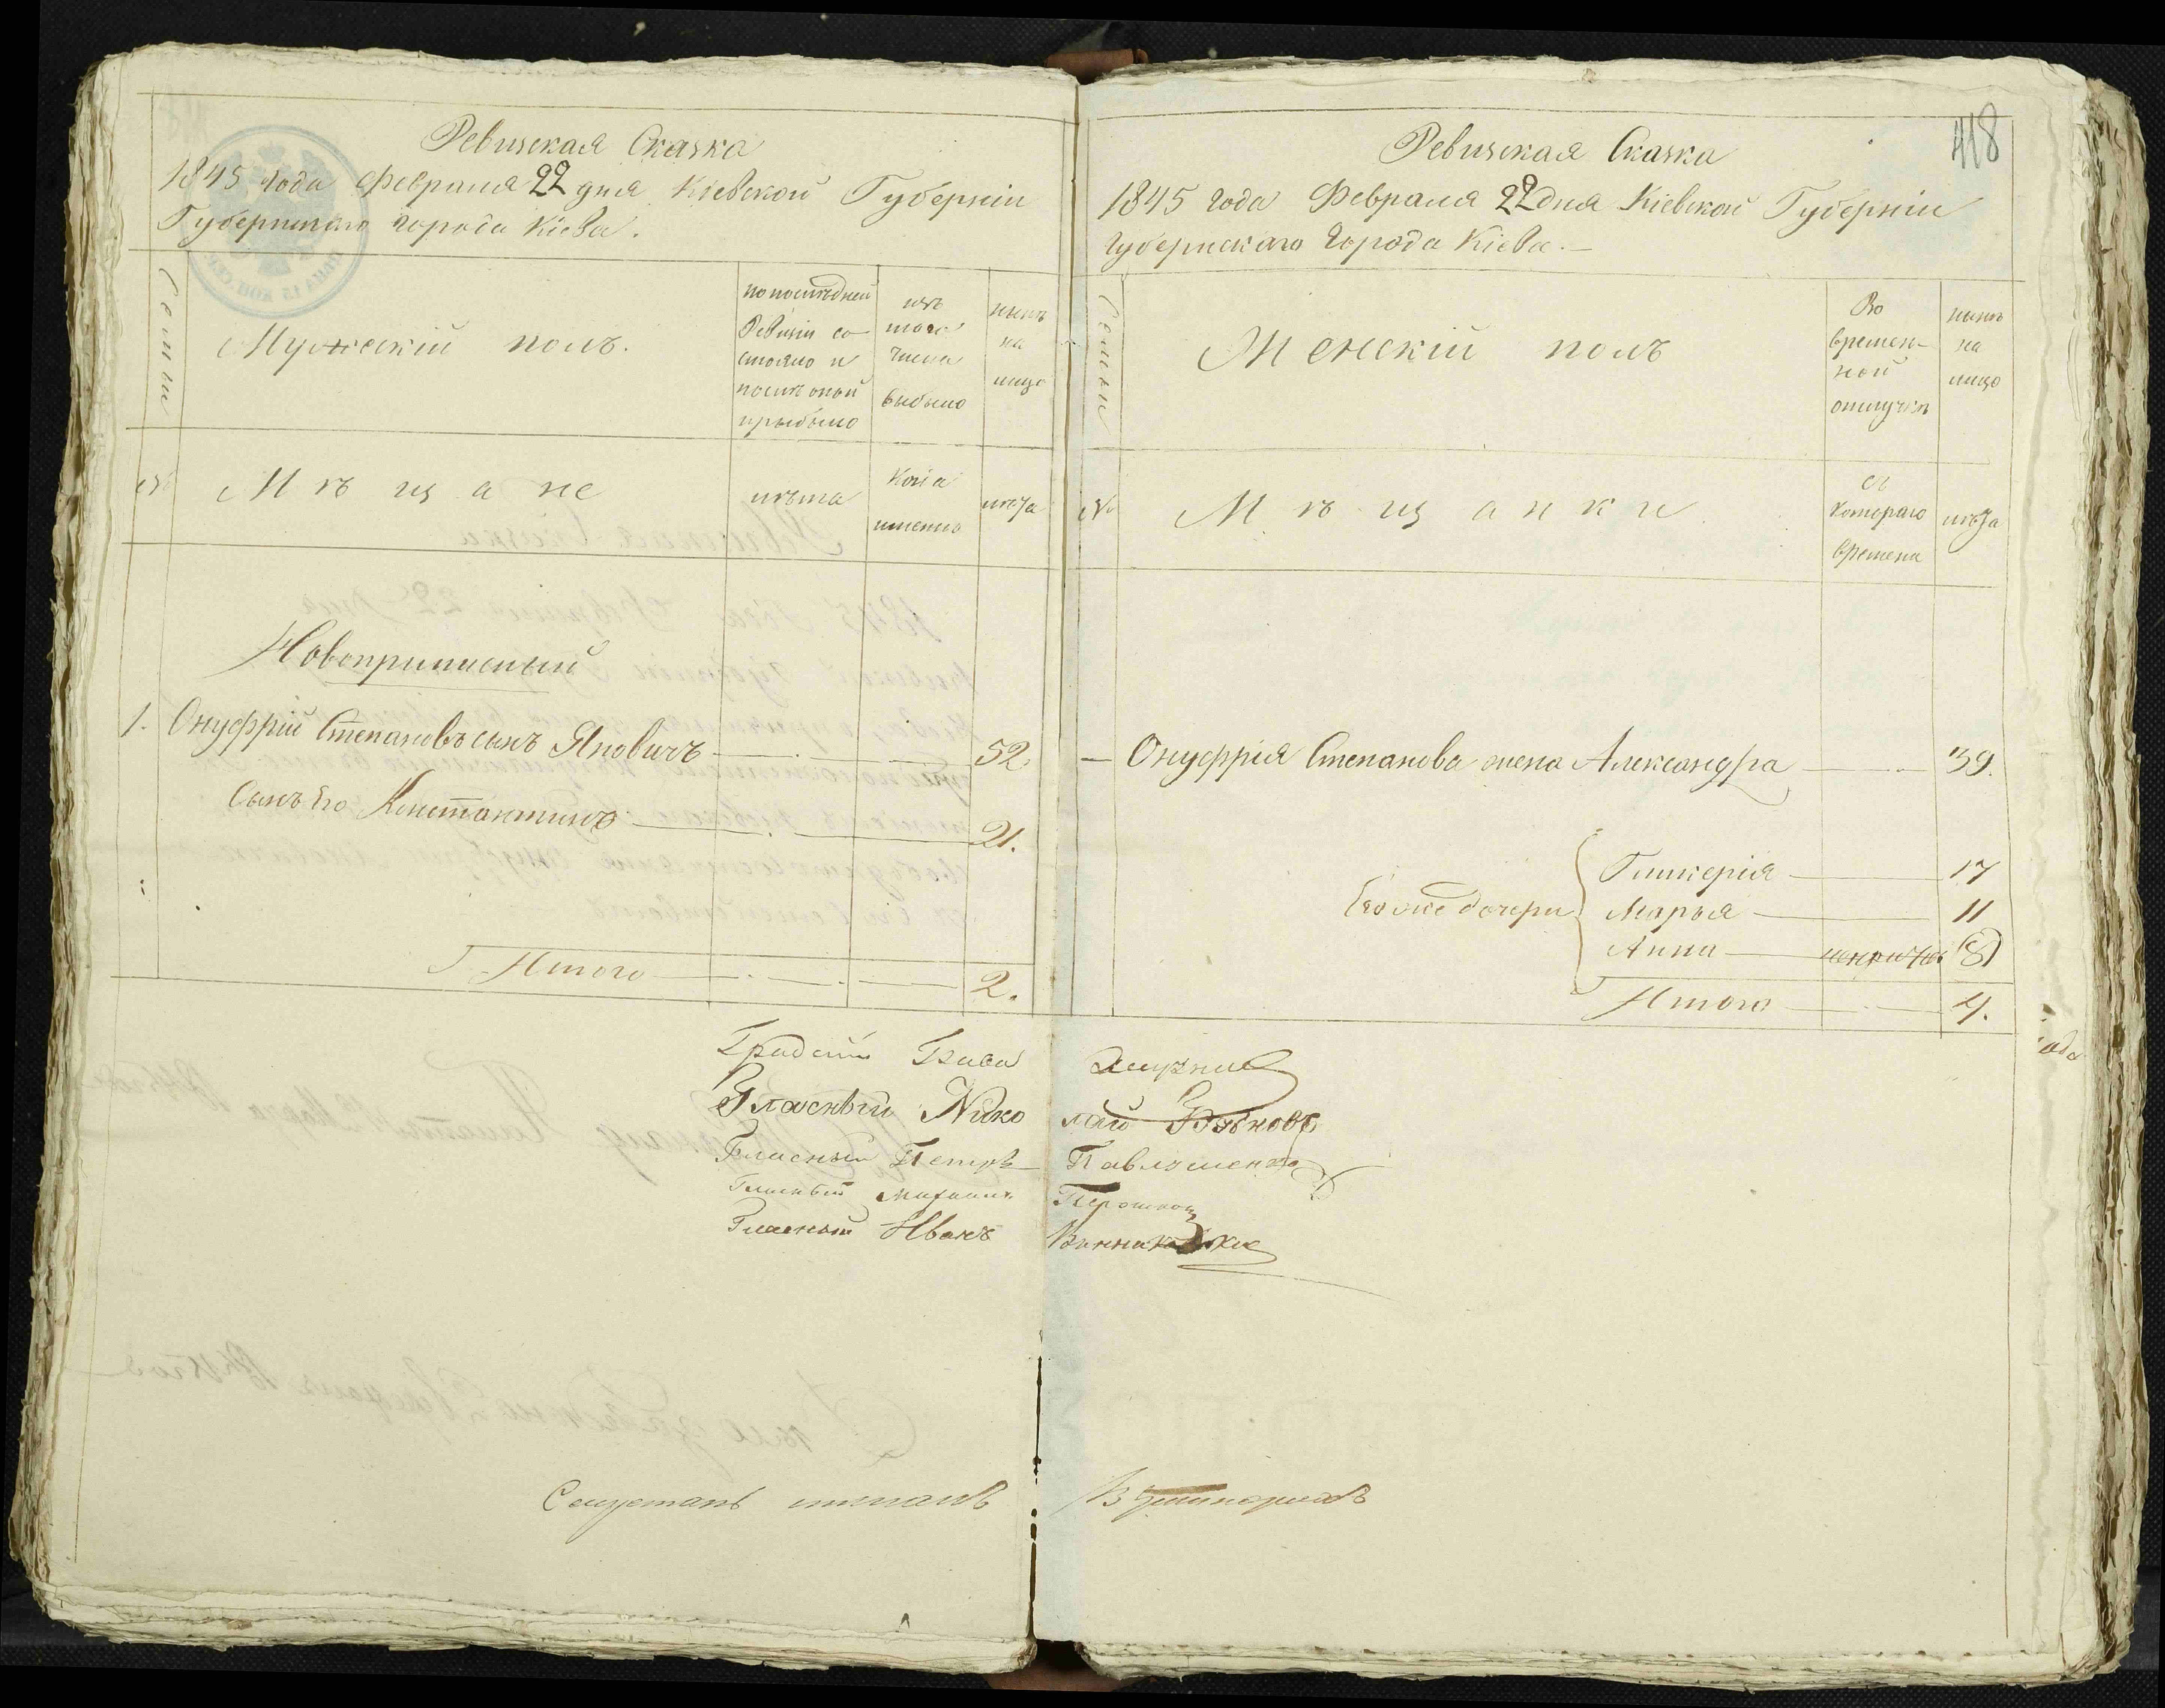 Ревизская Сказка
1845 года Февраля 22 дня Кіевской Губерніи
Губернскаго города Кіева.
Семьи
Мужескій полъ.
по последней
Ревизіи со-
стояло и
после оной
прибыло
изъ
того
числа
выбыло
ныне
на
лицо
№
Мѣщане
лѣта
Когда
именно
лѣта
Новоприписный
1. Онуфрій Степановъ сынъ Яновичъ 52
Сынъ Его Константинъ 21.
Итого 2.
418
Ревизская Сказка
1845 года Февраля 22 дня Кіевской Губерніи
губернскаго города Кіева.
Семьи
Женскій полъ
Во
времен-
ной
отлучкѣ
нынѣ
на
лицо
№
Мѣщанки
съ
котораго
времени
лѣта
Онуфрія Степанова жена Александра 39.
Его же дочери
Гликерія 17
Марья 11
Анна 8
Итого 4.
Градскій Глава
Гласный Николай
Гласный Петръ Павломенко
Гласный Михаилъ
Гласный Иванъ